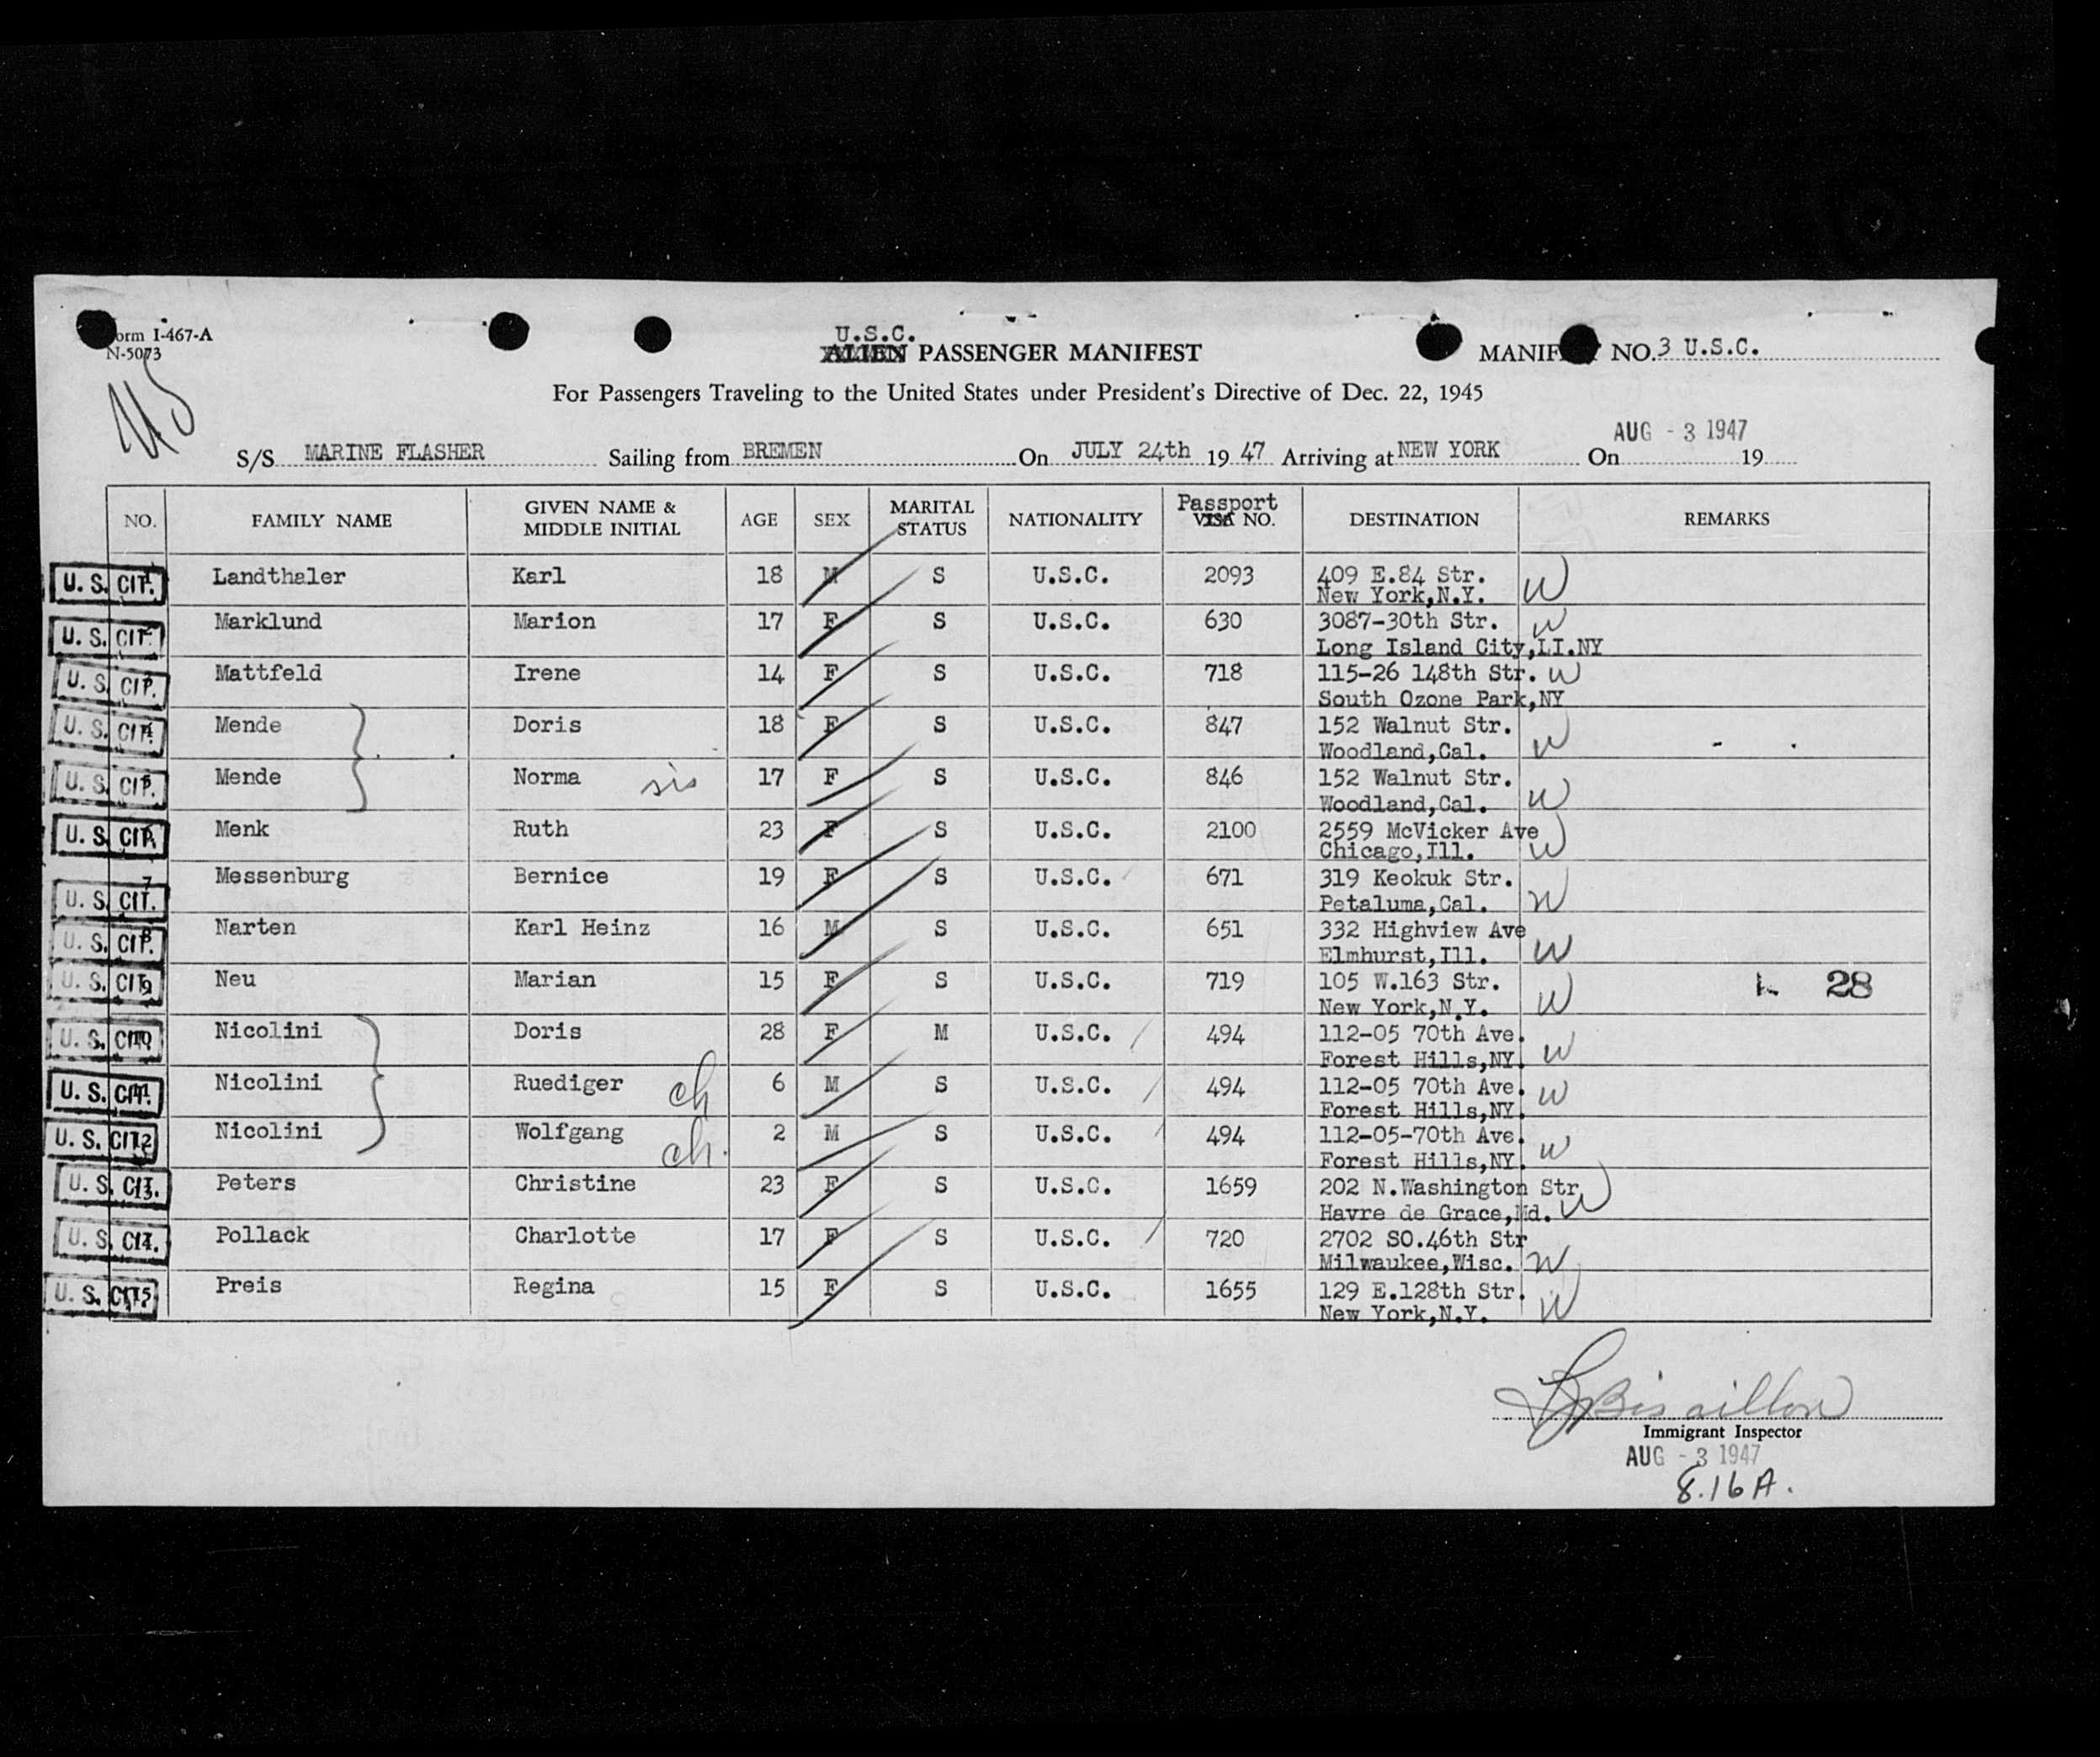 Form I-467-A
N-5073
US
U.S.C.
ALIEN PASSENGER MANIFEST
MANIFEST NO. 3 U.S.C.
For Passengers Traveling to the United States under President's Directive of Dec. 22, 1945
AUG - 3 1947
S/S MARINE FLASHER Sailing from BREMEN On JULY 24th 19 47 Arriving at NEW YORK On 19
NO. FAMILY NAME GIVEN NAME & MIDDLE INITIAL AGE SEX MARITAL STATUS NATIONALITY Passport VISA NO. DESTINATION REMARKS
U. S. CIT. 1 Landthaler Karl 18 M S U.S.C. 2093 409 E.84 Str.
New York,N.Y. W
U. S. CIT. 2 Marklund Marion 17 F S U.S.C. 630 3087-30th Str. W
Long Island City,LI.NY
U. S. CIT. 3 Mattfeld Irene 14 F S U.S.C. 718 115-26 148th Str. W
South Ozone Park,NY
U. S. CIT. 4 Mende Doris 18 F S U.S.C. 847 152 Walnut Str.
Woodland,Cal. W
U. S. CIT. 5 Mende Norma sis 17 F S U.S.C. 846 152 Walnut Str.
Woodland,Cal. W
U. S. CIT. 6 Menk Ruth 23 F S U.S.C. 2100 2559 McVicker Ave
Chicago,Ill. W
U. S. CIT. 7 Messenburg Bernice 19 F S U.S.C. 671 319 Keokuk Str.
Petaluma,Cal. W
U. S. CIT. 8 Narten Karl Heinz 16 M S U.S.C. 651 332 Highview Ave
Elmhurst,Ill. W
U. S. CIT. 9 Neu Marian 15 F S U.S.C. 719 105 W.163 Str. 28
New York,N.Y. W
U. S. CIT. 10 Nicolini Doris 28 F M U.S.C. 494 112-05 70th Ave.
Forest Hills,NY. W
U. S. CIT. 11 Nicolini Ruediger ch 6 M S U.S.C. 494 112-05 70th Ave. W
Forest Hills,NY.
U. S. CIT. 12 Nicolini Wolfgang ch. 2 M S U.S.C. 494 112-05-70th Ave.
Forest Hills,NY. W
U. S. CIT. 13. Peters Christine 23 F S U.S.C. 1659 202 N.Washington Str
Havre de Grace,Md. W
U. S. CIT. 14. Pollack Charlotte 17 F S U.S.C. 720 2702 SO.46th Str
Milwaukee,Wisc. W
U. S. CIT. 15 Preis Regina 15 F S U.S.C. 1655 129 E.128th Str.
New York,N.Y. W
Bisaillon
Immigrant Inspector
AUG - 3 1947
8.16 A.